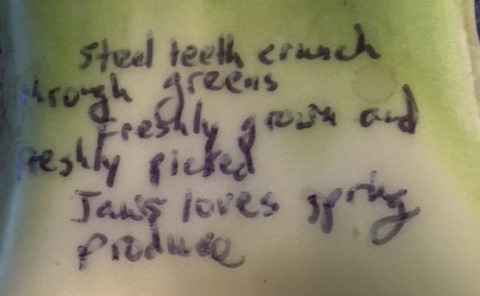 Steel teeth crunch
through greens
Freshly grown and
freshly picked
Jaws loves spring
produce